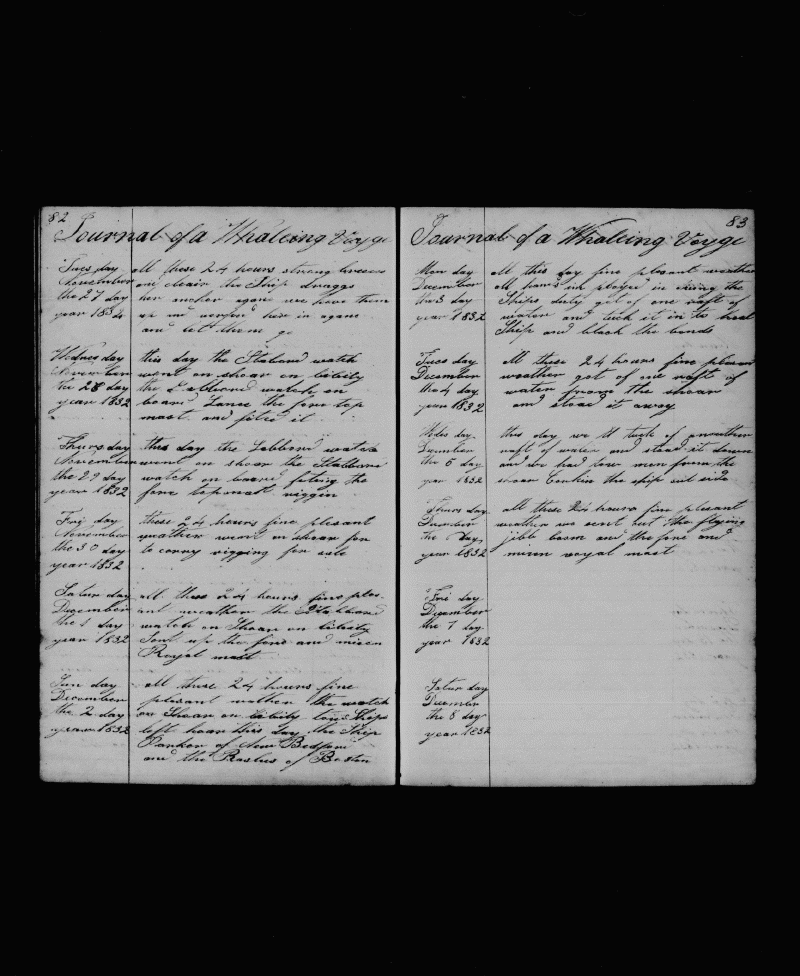 82
Journal of a Whaleing Voyge
Tues day all these 24 hours strong breses
November on cleair the Ship draggs
the 27 day her ancker agane we have them
year 1832 up and
and let them go
Wednes day this day the Stabord watch
November went on shoar on libity
the 28 day the Labbord watch on
year 1832 board the fore top
mast and it
Thurs day this day the Labbord watch
November went on shoar the Stabbord
the 29 day watch on board the
year 1832 fore topmast riggin
Frij day these 24 hours fine plesant
November weather went on shoar for
the 30 day to carry rigging for sale
year 1832
Satur day all these 24 hours fine ples
December ant weather the Stabbord
the 1 day watch on Shoar on libity
year 1832 Sent up the fore and misen
Royal mast
Sun day all these 24 hours fine
December plesant wather the watch
the 2 day on Shoar on libity tow Ships
year 1832 left hear this day the Ship
Parker of New Bedford
and the of Boston
83
Journal of a Whaleing Voyge
Mon day all this day fine plesant weather
December all hands in ployed in doing the
the 3 day Ships duty got of one raft of
year 1832 water and tuck it in to the
Ship and black the bends
Tues day all these 24 hours fine plesan
December weather got of one raft of
the 4 day water from the shoar
year 1832 and stoad it away
Wedes day this day we tuck of annother
December raft of water and stoad it down
the 5 day and we had four men from the
year 1832 shoar the ship out side
Thurs day all these 24 hours fine plesant
December weather we sent out the flying
the day jibb boom and the fore and
year 1832 misen royal mast
Frij day
December
the 7 day
year 1832
Satur day
December
the 8 day
year 1832